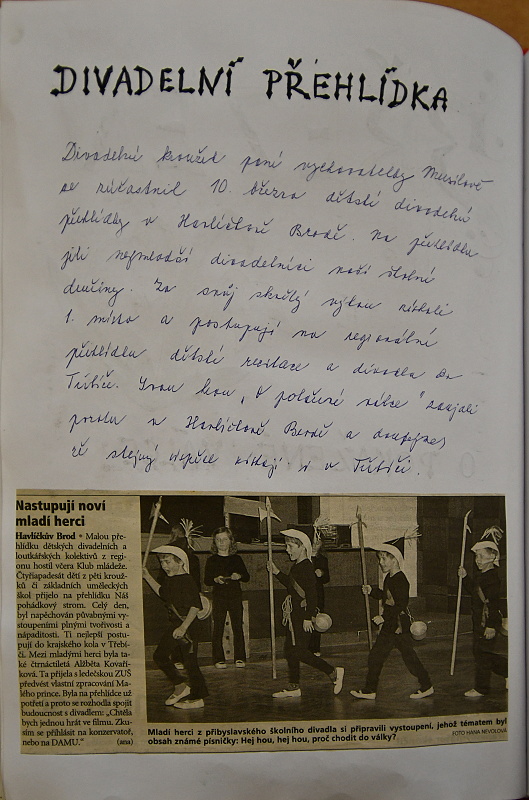 DIVADELNÍ PŘEHLÍDKA
Divadelní kroužek paní vychovatelky Musilové
se zúčastnil 10. března dětské divadelní
přehlídky v Havlíčkově Brodě. Na přehlídku
jeli nejmladší divadelníci naší školní
družiny. Za svůj skvělý výkon získali
1. místo a postupují na regionální
přehlídku dětské recitace a divadla do
Třebíče. Svou hrou „O válce" zaujali
porotu v Havlíčkově Brodě a doufejme,
že stejný úspěch získají i v Třebíči.
Nastupují noví
mladí herci
Havlíčkův Brod • Malou pře-
hlídku dětských divadelních a
loutkářských kolektivů z regi-
onu hostil včera Klub mládeže.
Čtyřiapadesát dětí z pěti krouž-
ků či základních uměleckých
škol přijelo na přehlídku Náš
pohádkový strom. Celý den,
byl napěchován půvabnými vy-
stoupeními plnými tvořivosti a
nápaditosti. Ti nejlepší postu-
pují do krajského kola v Třebí-
či. Mezi mladými herci byla ta-
ké čtrnáctiletá Alžběta Kovaří-
ková. Ta přijela s ledečskou ZUŠ
předvést vlastní zpracování Ma-
lého prince. Byla na přehlídce už
potřetí a proto se rozhodla spojit
budoucnost s divadlem: „Chtěla
bych jednou hrát ve filmu. Zku-
sím se přihlásit na konzervatoř,
nebo na DAMU." (ana)
Mladí herci z přibyslavského školního divadla si připravili vystoupení, jehož tématem byl
obsah známé písničky: Hej hou, hej hou, proč chodit do války?
FOTO HANA NEVOLOVÁ